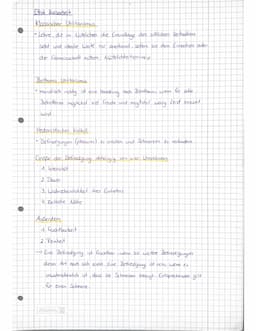 Ethik Kursarbeit
Klassischer Utilitarismus
• Lehre, die im Nützlichen die Grundlage des sittlichen Verhaltens
sieht und ideale Werte nur anerkennt, sofern sie dem Einzelnen oder
der Gemeinschaft nützen; Nützlichkeitsprinzip
Benthams Utilitarismus
• moralisch richtig ist eine Handlung nach Bentham wenn für alle
Betroffenen möglichst viel Freude und möglichst wenig Leid erzeugt
wird
Hedonistisches Kalkül
• Befriedigungen (pleasures) zu erzielen und Schmerzen zu vermeiden
Größe der Befriedigung abhängig von vier Umständen
1. Intensität
2. Dauer
3. Wahrscheinlichkeit ihres Eintretens
4. Zeitliche Nähe
Außerdem:
1. Fruchtbarkeit
2. Reinheit
→ Eine Befriedigung ist fruchtbar wenn sie weitere Befriedigungen
dieser Art nach sich zieht. Eine Befriedigung ist rein, wenn es
unwahrscheinlich ist, dass sie Schmerzen bringt. Entsprechendes gilt
für einen Schmerz.